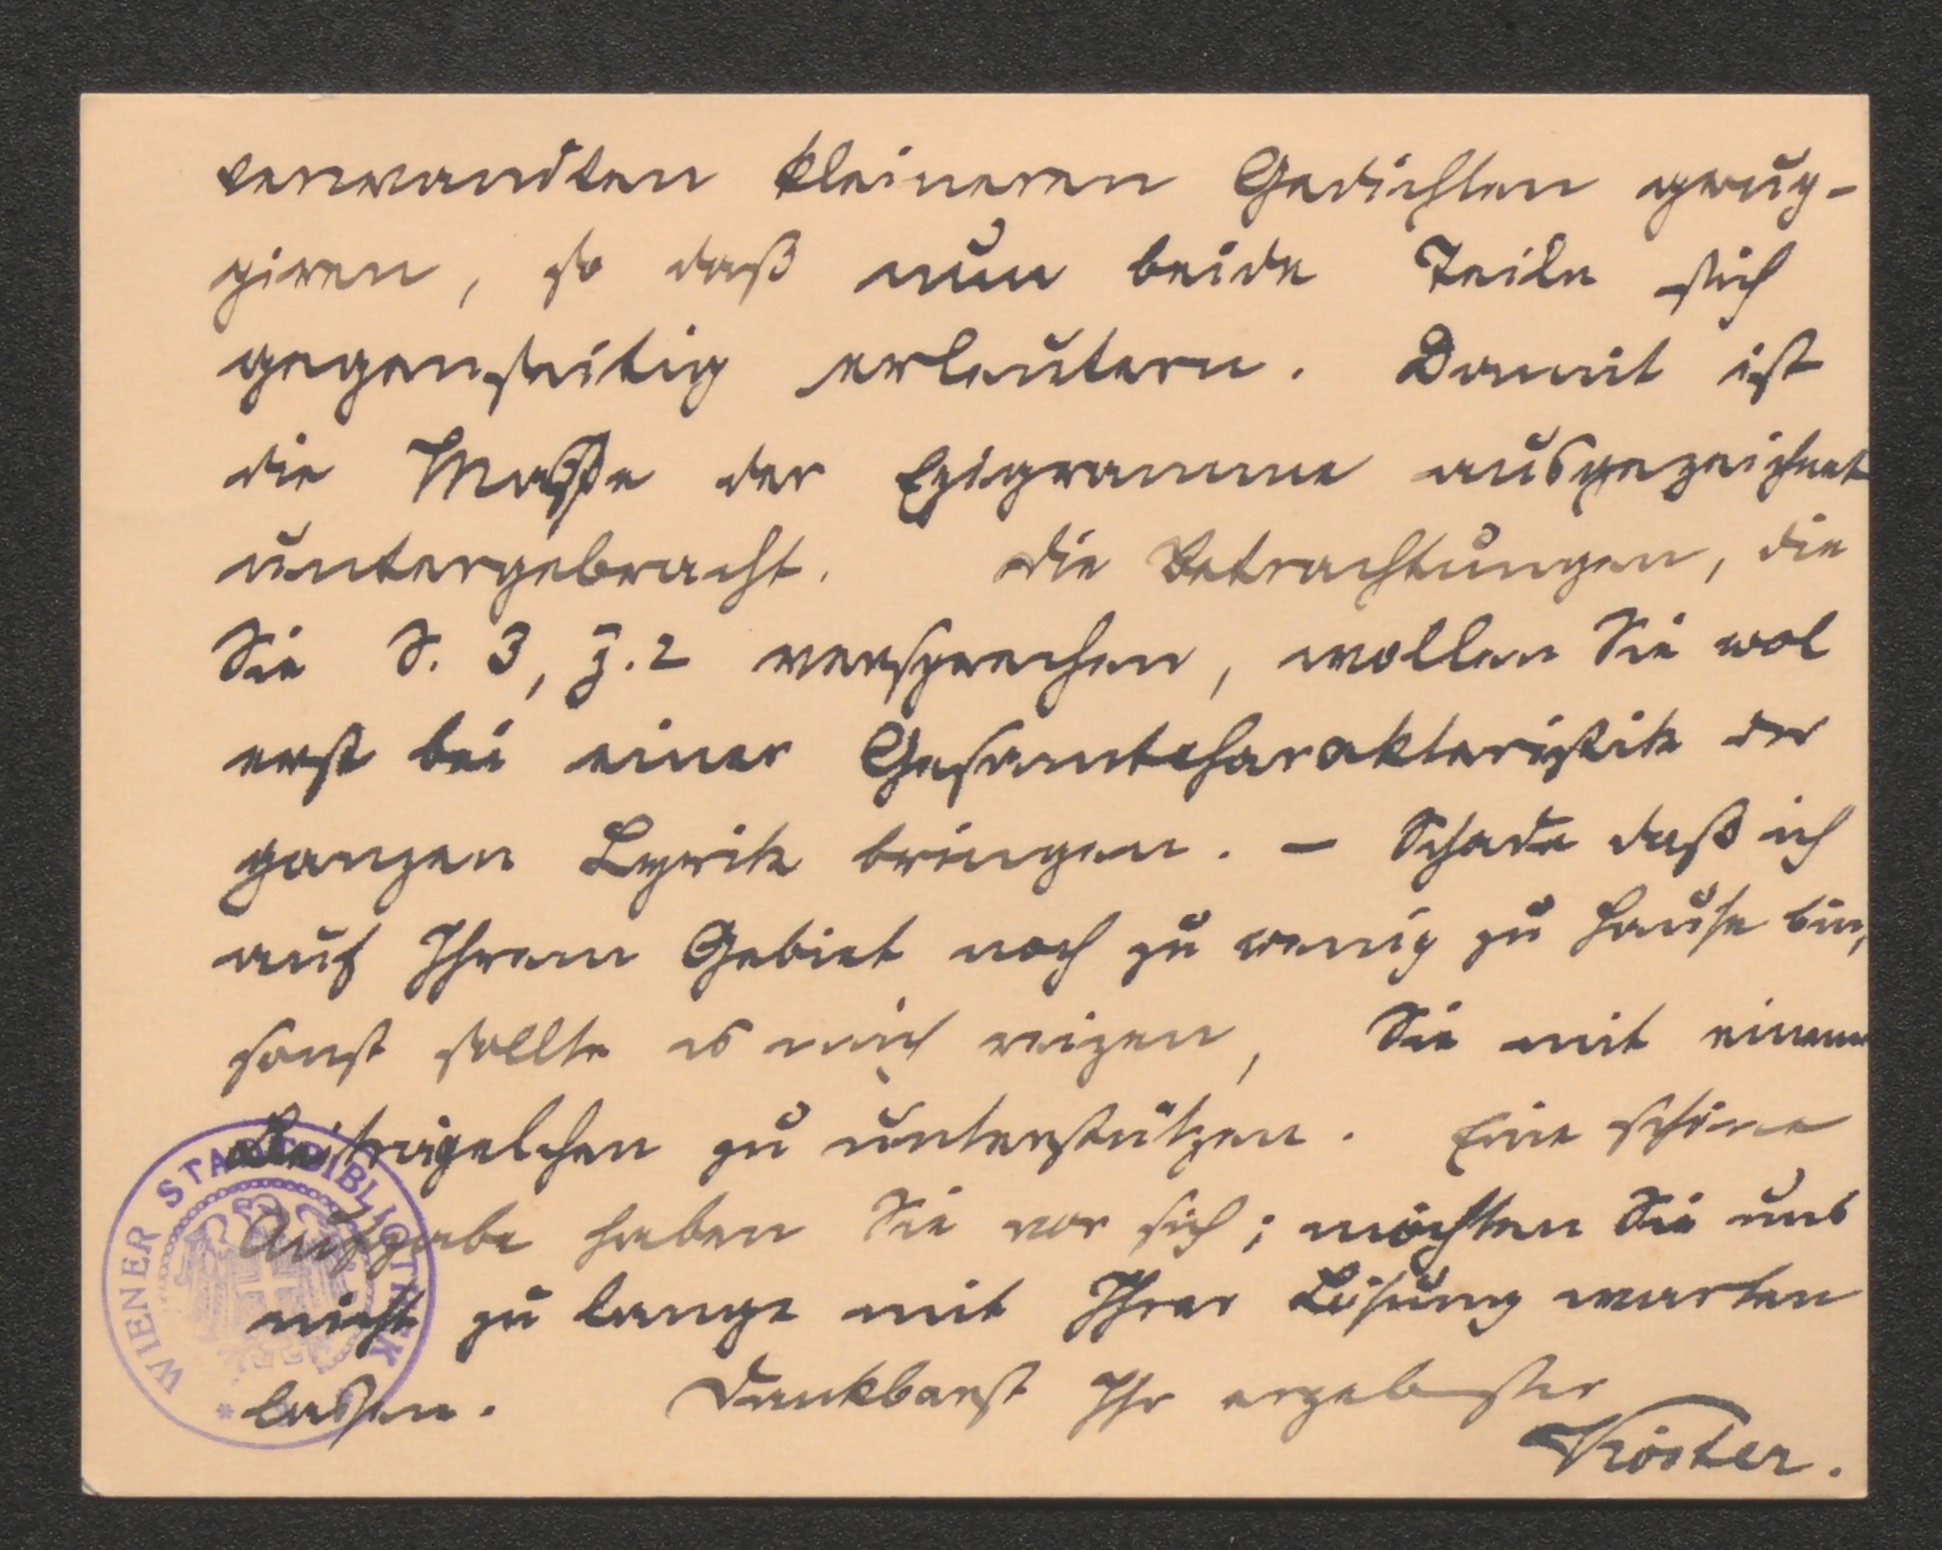 verwandten kleineren Gedichten grup-
piren, so daß nun beide Teile sich
gegenseitig erleutern. Damit ist
die Masse der Epigramme ausgezeichnet
untergebracht. Die Betrachtungen, die
Sie S. 3, Z. 2 versprechen, wollen Sie wol
erst bei einer Gesamtcharakteristik der
ganzen Lyrik bringen. – Schade daß ich
auf Ihrem Gebiet noch zu wenig zu Hause bin,
sonst sollte es mich reizen, Sie mit einem
Beiträgelchen zu unterstützen. Eine schöne
Aufgabe haben Sie vor sich; möchten Sie uns
nicht zu lange mit Ihrer Lösung warten
lassen. Dankbarst Ihr ergebenster
Köster.
WIENER STADTBIBLIOTHEK